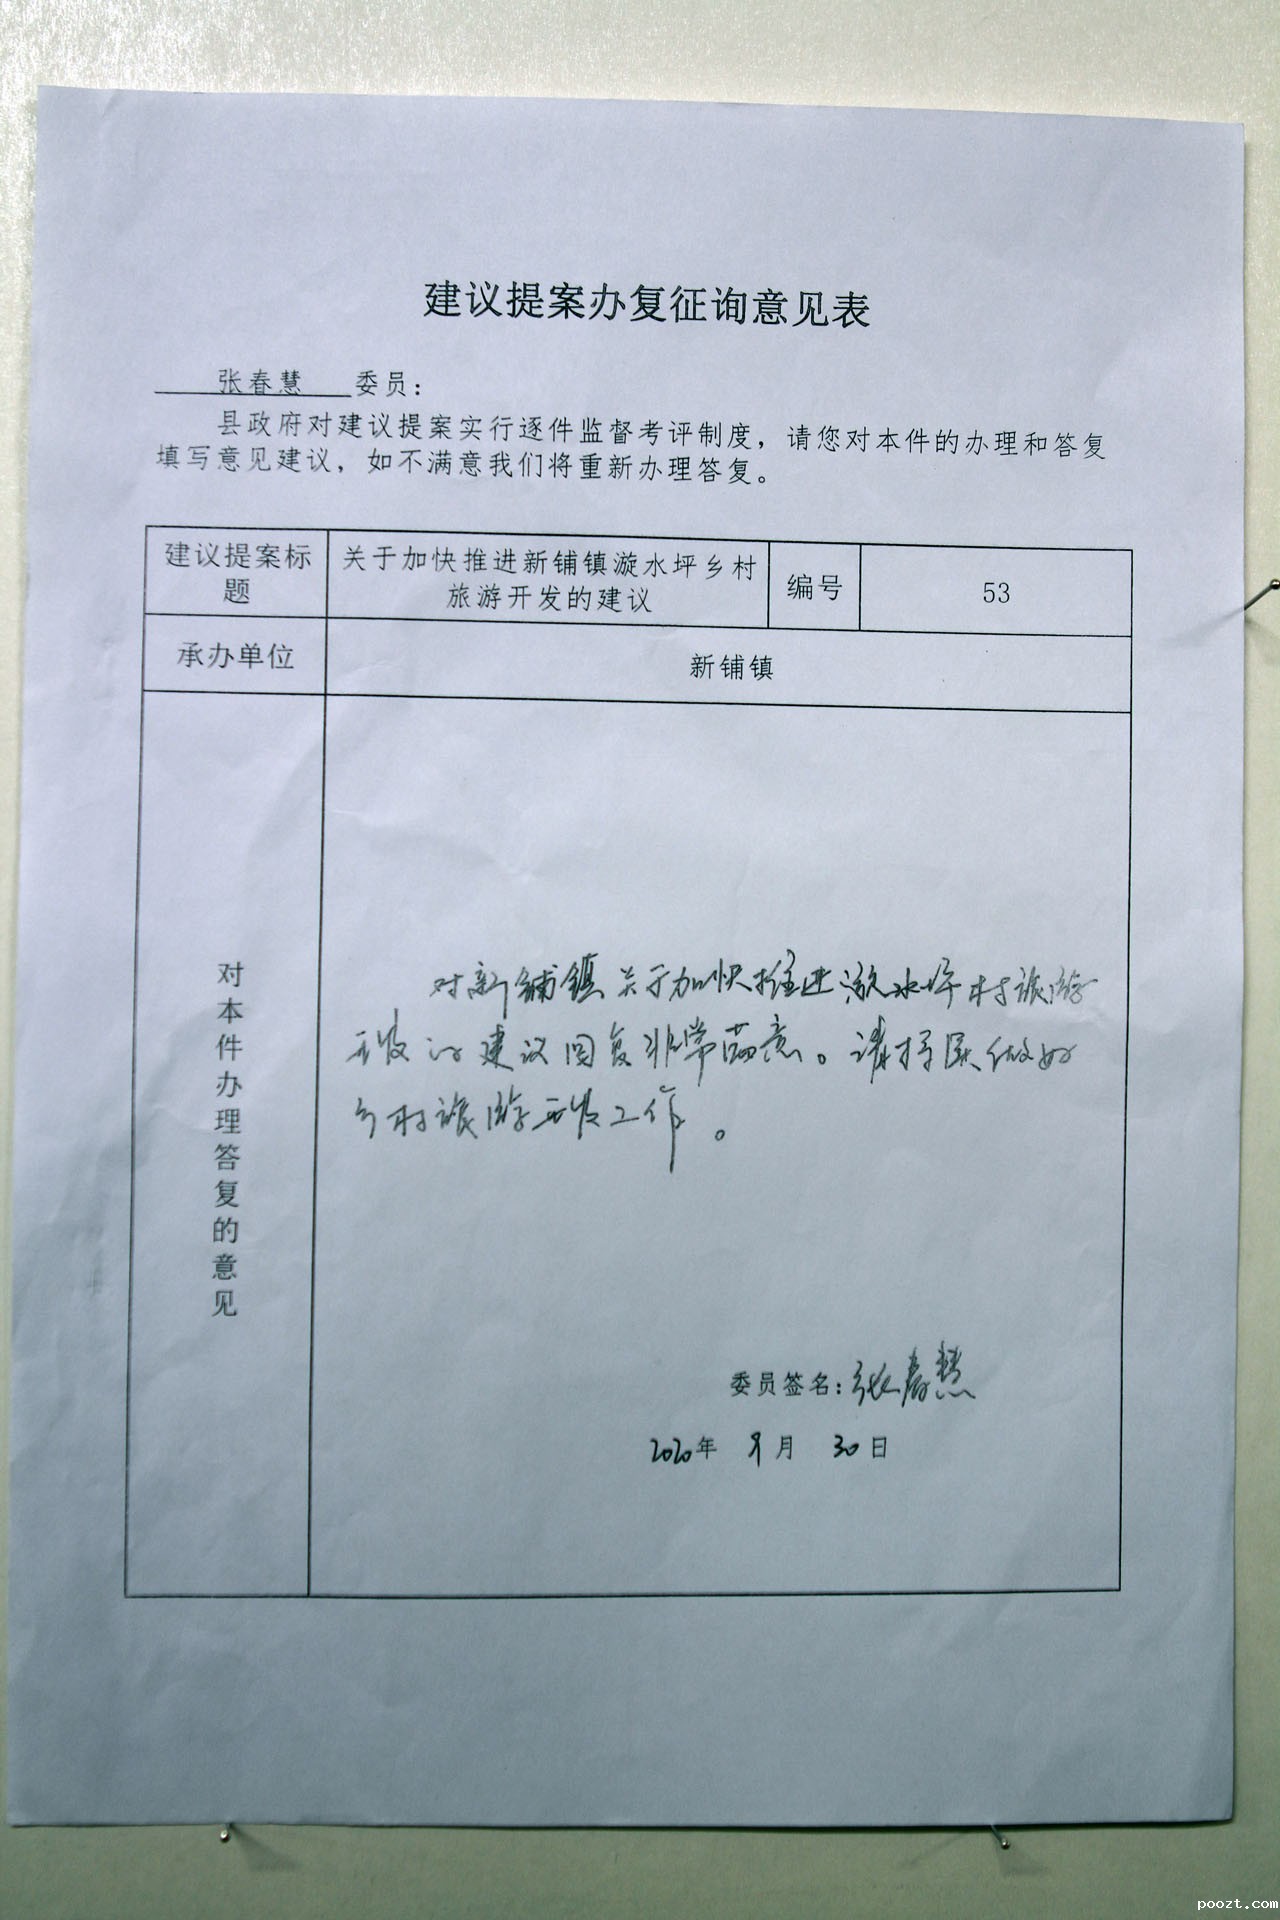 建议提案办复征询意见表
张春慧 委员：
县政府对建议提案实行逐件监督考评制度，请您对本件的办理和答复
填写意见建议，如不满意我们将重新办理答复。
建议提案标
题
关于加快推进新铺镇漩水坪乡村
旅游开发的建议
编号
53
承办单位
新铺镇
对本件办理答复的意见
对新铺镇关于加快推进漩水坪村旅游
开发的建议回复非常满意。请持续做好
乡村旅游开发工作。
委员签名：张春慧
2020年 9月 30日
poozt.com